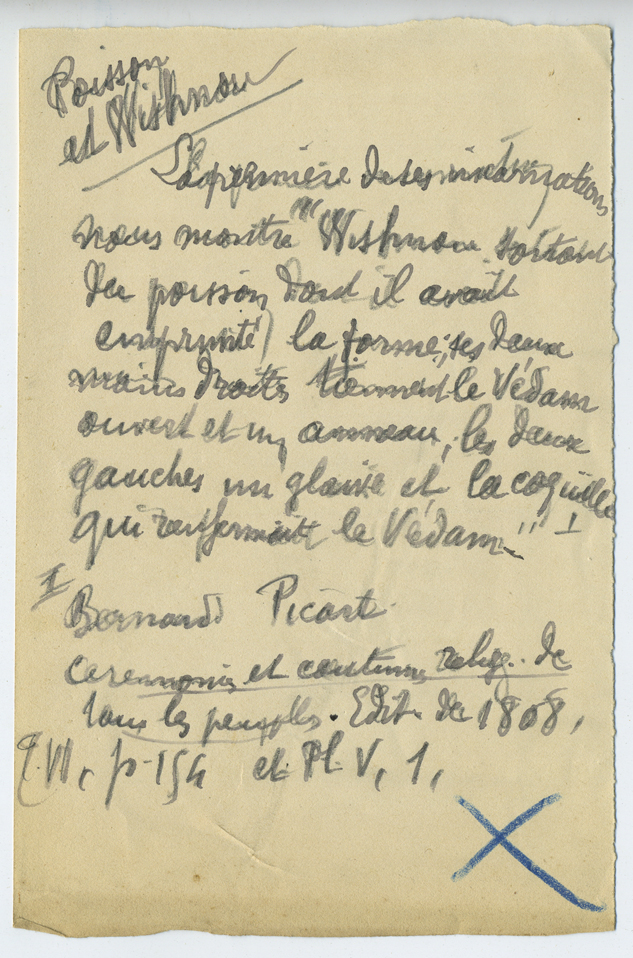 Poisson
et Wishnou
La première de ses incarnations
nous montre "" Wishnou sortant
du poisson dont il avait
emprunté la forme; ses deux
mains droites tiennent le Védam
ouvert et un anneau; les deux
gauches un glaive et la coquille
qui renfermait le Védam" I
I
Bernard Picart
Ceremonies et coutumes relig. de
tous les peuples. Edit. de 1808,
T. VI, p. 154 et Pl. V, 1,